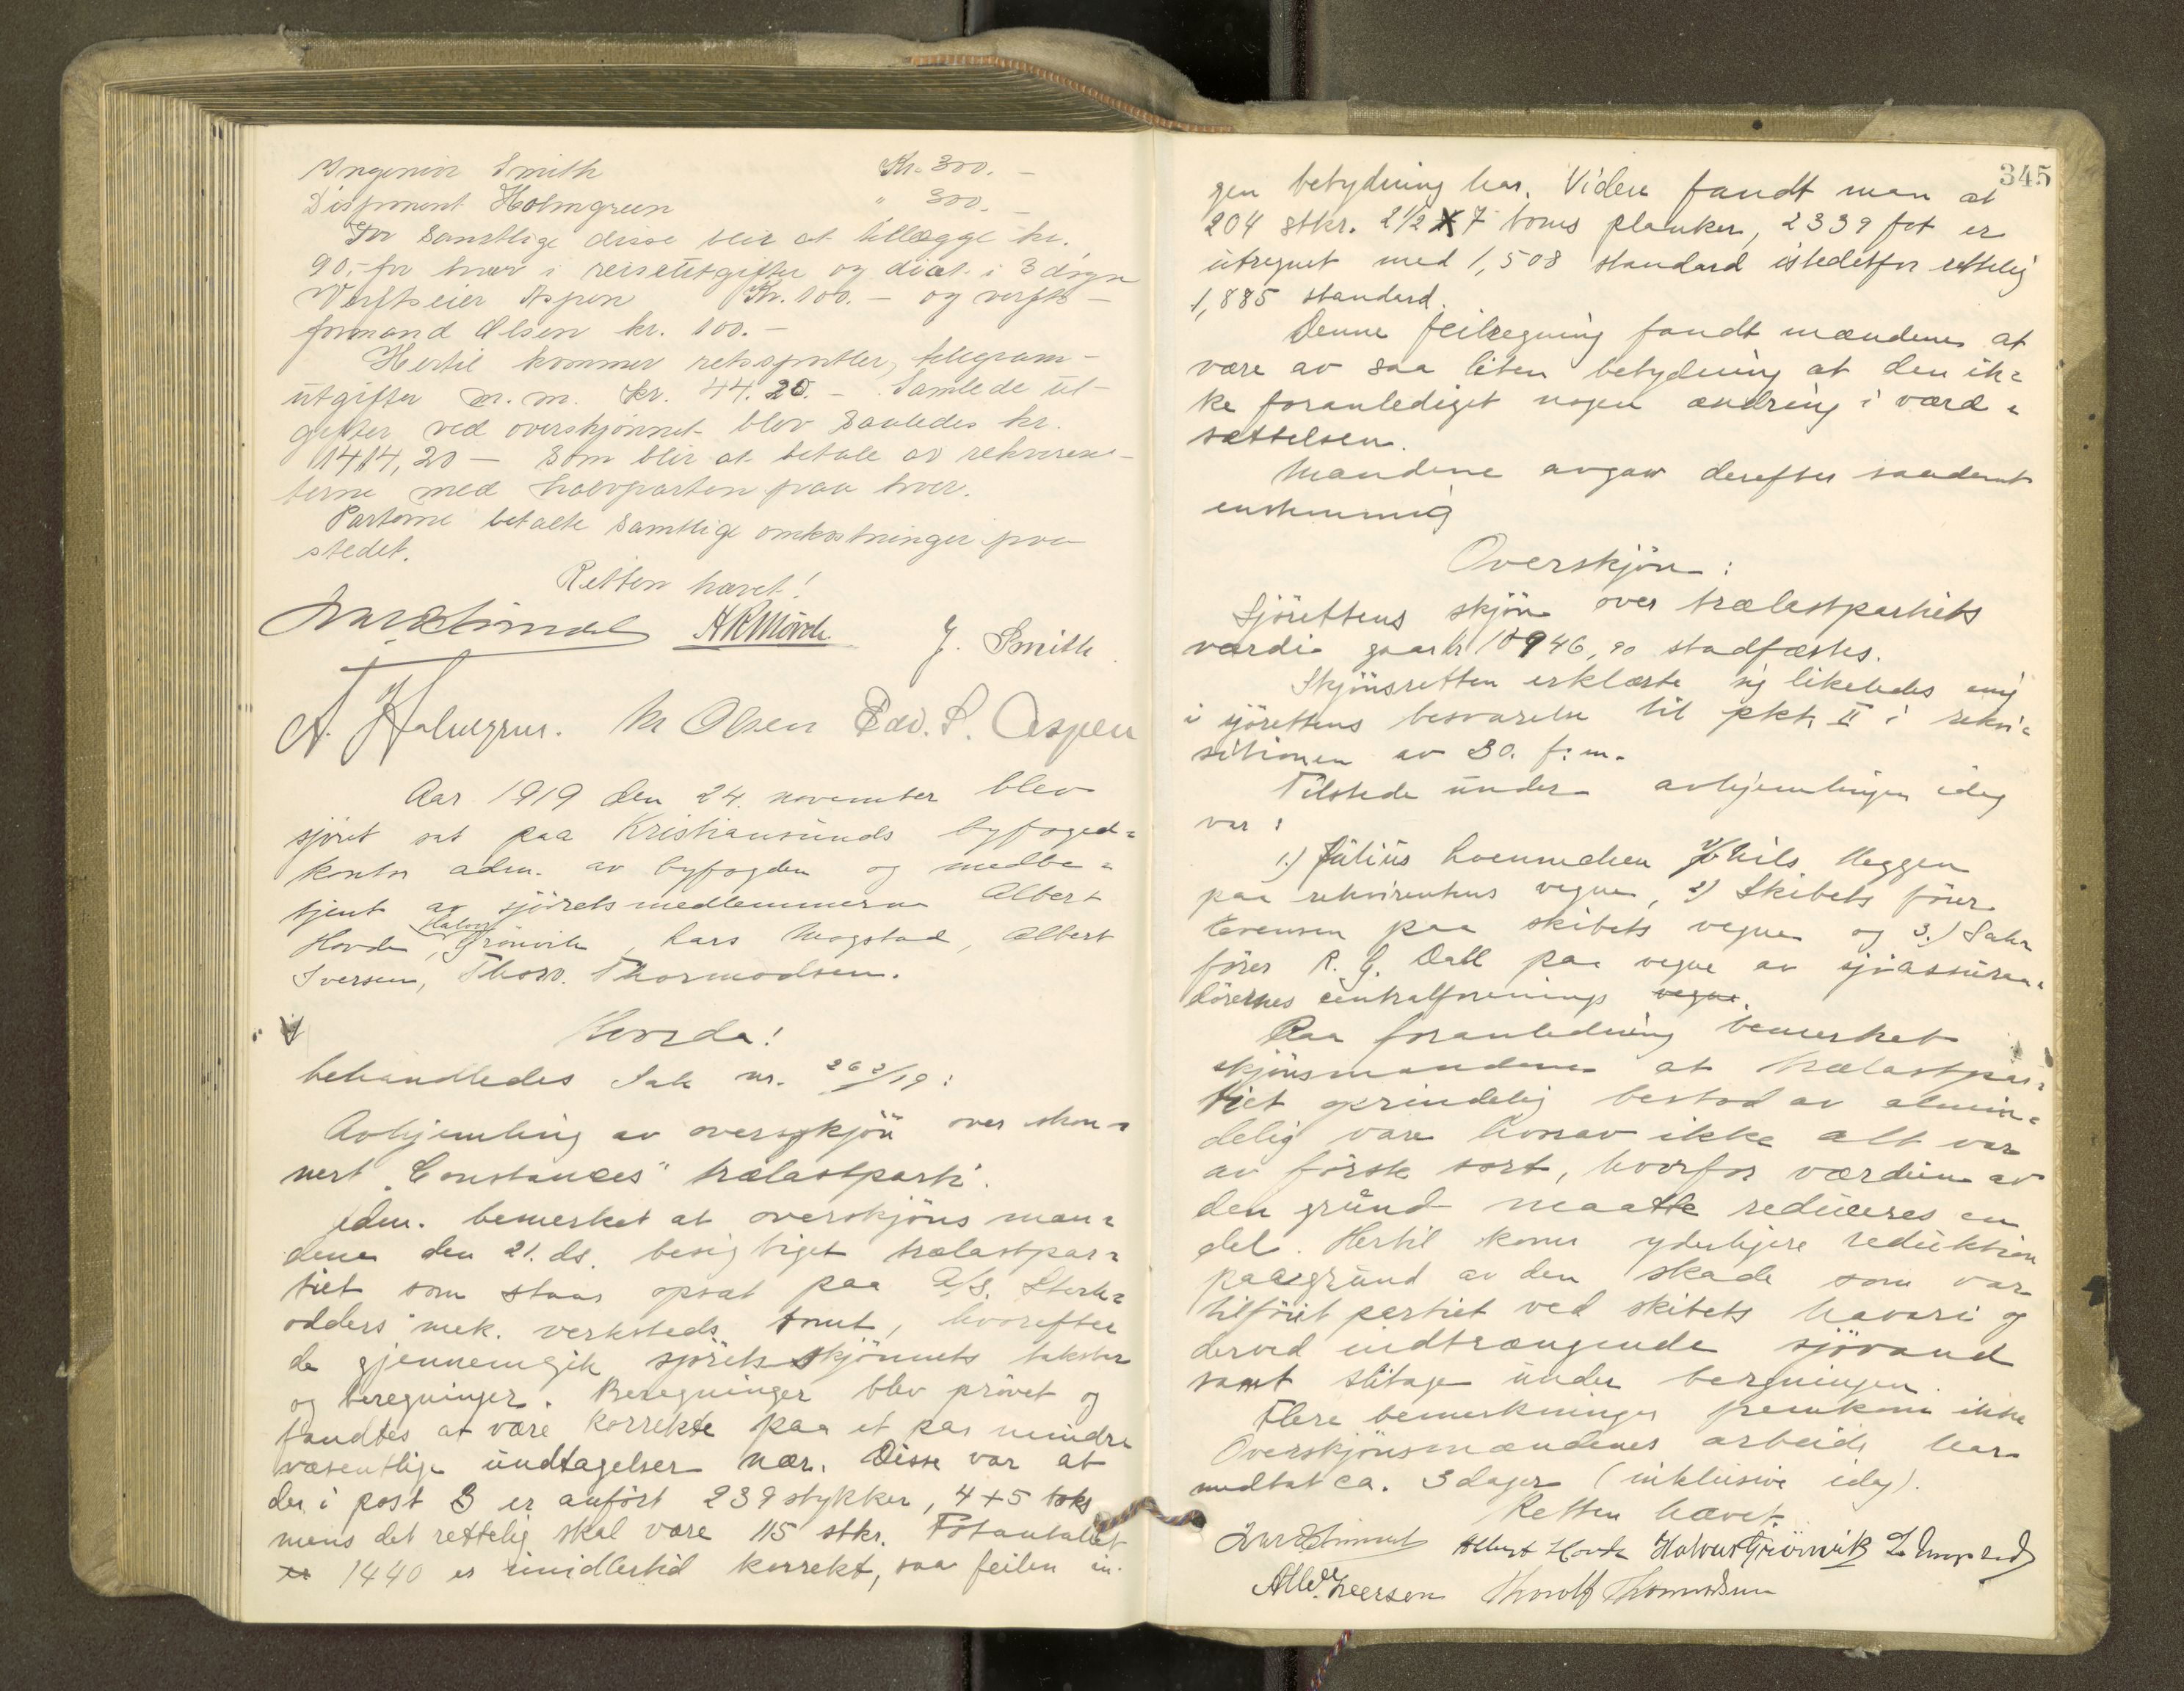 Ingeniør Smith Kr. 300.-
Disponent Holmgreen " 300.-
For samtlige disse blir at tillægge kr.
90,- for hver i reiseutgifter og diæt i 3 døgn
Verftseier Aspen Kr. 100.- og verfts-
formand Olsen kr. 100.-
Hertil kommer retssportler, telegram-
utgifter m.m. kr. 44.20.- Samlede ut-
gifter ved overskjønnet blev saaledes kr.
1414,20 - som blir at betale av rekviren-
terne med halvparten paa hver.
Parterne betalte samtlige omkostninger paa
stedet.
Retten hævet!
J. Smith
A. Holmgren. M Olsen Edv. S. Aspen
Aar 1919 den 24. november blev
sjøret sat paa Kristiansunds byfoged=
kontor adm. av byfogden og medbe=
tjent av sjøretsmedlemmerne Albert
Halvor
Hovde, Grønvik, Lars Magstad, Albert
Iversen, Thorv. Thormodsen.
Hvorda!
behandledes Sak nr. 262/19:
Avhjemling av overskjøn over skon=
nert "Constances" trælastparti.
Adm. bemerket at overskjøns mæn=
dene den 21. ds. besigtiget trælastpar=
tiet som staar opsat paa A/S. Stork=
odders mek. verksteds tomt, hvorefter
de gjennemgik sjørets skjønnets takster
og beregninger. Beregninger blev prøvet og
fandtes at være korrekte paa et par mindre
væsentlige undtagelser nær. Disse var at
der i post 3 er anført 239 stykker, 4+5 toms
mens det rettelig skal være 115 stkr. Fotantallet
er 1440 er imidlertid korrekt, saa feilen in-
345
gen betydning har. Videre fandt man at
204 stkr. 2 1/2 X 7 toms planker, 2339 fot er
utregnet med 1,508 standard istedetfor rettelig
1,885 standard.
Denne feilregning fandt mændene at
være av saa liten betydning at den ik=
ke foranlediget nogen ændring i værd=
sættelsen.
Mændene avgav derefter saadant
enstemmig
Overskjøn:
Sjørettens skjøn over trælastpartiets
værdi gaar kr 10946,90 stadfæstes.
Skjønsretten erklærte sig likeledes enig
i sjørettens besvarelse til pkt. II i rekvi=
sitionen av 30. f.m.
Tilstede under avhjemlingen idag
var:
1.) Julius Loennechen v/ Nils Heggen
paa rekvirentens vegne, 2) Skibets fører
Evensen paa skibets vegne og 3.) Sakr
fører R. G. Dall paa vegne av sjøassuran=
dørernes centralforenings vegne.
Paa foranledning bemerket
skjønsmændene at trælastpar=
tiet oprindelig bestod av almin=
delig vare hvorav ikke alt var
av første sort, hvorfor værdien av
den grund maatte reduceres en
del. Hertil kom yderligere reduktion
paagrund av den skade som var
tilføiet partiet ved skibets havari og
derved indtrængende sjøvand
samt slitage under bergningen.
Flere bemerkninger fremkom ikke
Overskjønsmændenes arbeide har
medtat ca. 3 dager (inklusive idag).
Retten hævet.
Albert Hovde Halvor Grönvik L Magstad
Alb. Iversen Thorolf Thormodsen